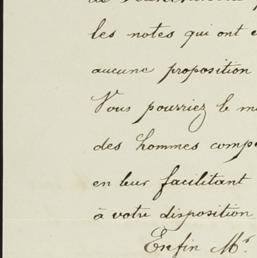 les notes qui ont
aucune proposition
Vous pourriez le
des hommes
en leur facilitant
à votre disposition
Enfin Mr.